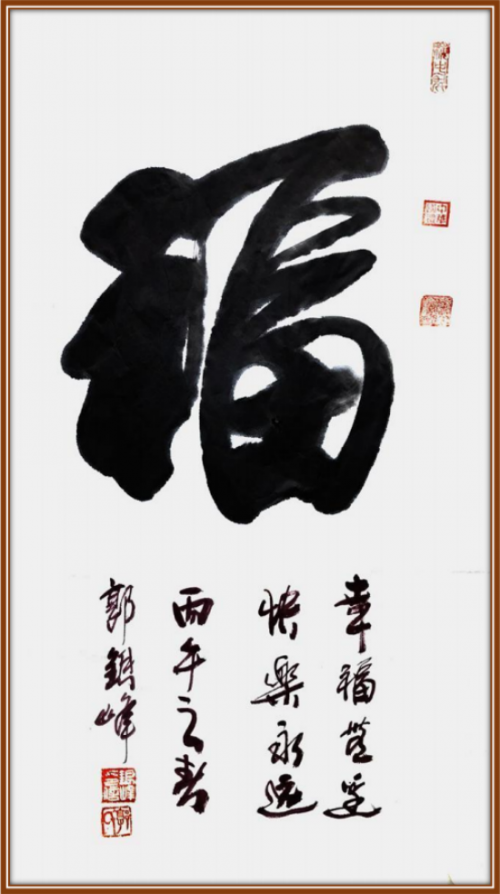 福
幸福荁
快樂永遠
丙午之春
郭峰